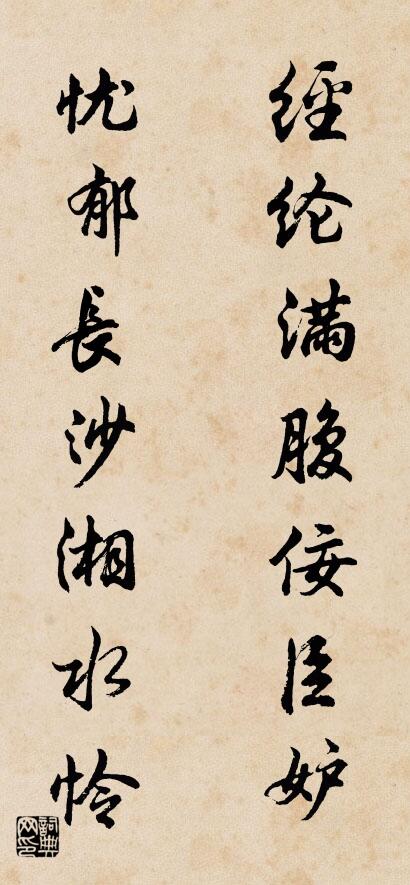 經纶满腹佞臣妒
忧郁長沙湘水怜
詞典网印